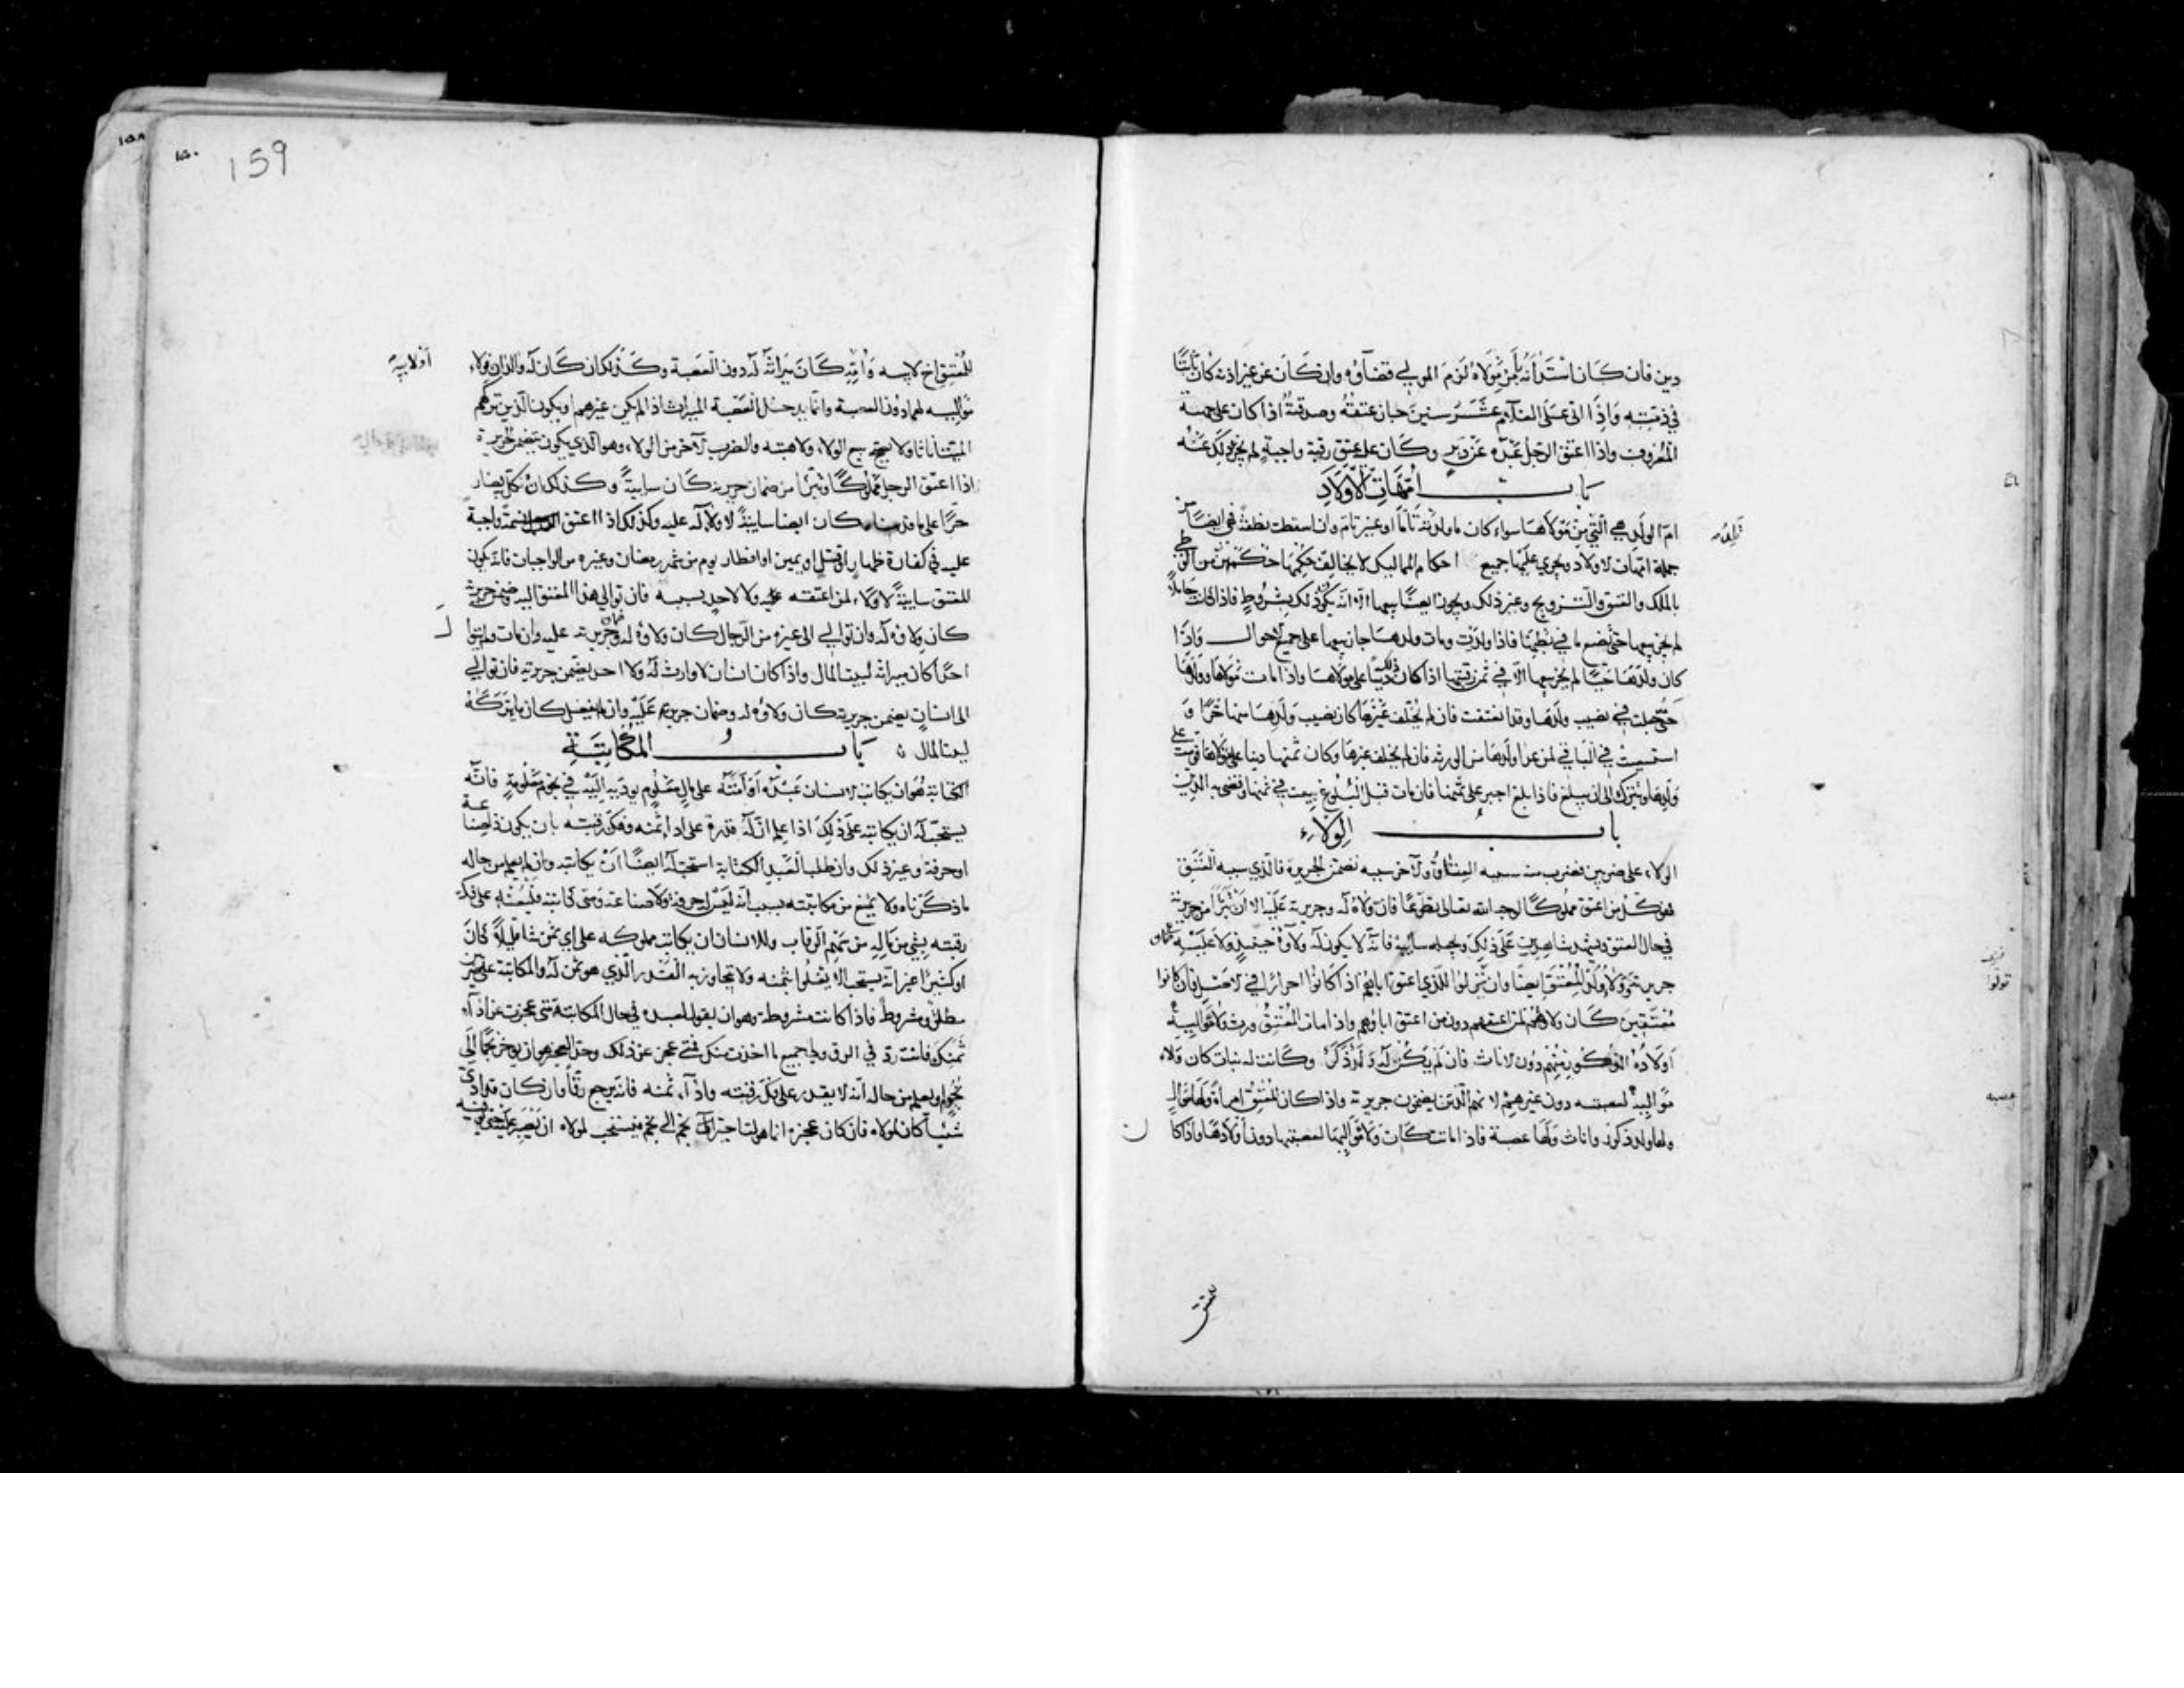 دين فان كان استدانه بأمر مولاه لزم المولى قضاؤه وان كان عن غير اذنه كان ثابتا
في ذمته واذا اتى على الغلام عشر سنين جاز عتقه وصدقته اذا كان على جهة
المعروف واذا اعتق الرجل عبده عن دبر وكان عليه عتق رقبة واجبة لم يجز ذلك عنه
باب امهات الاولاد
ام الولد هي التي من مولاها سواء كان ما ولدته تاما او غير تام وان اسقطت نطفة فهي ايضا من
تلد منه
جملة امهات الاولاد ويجري عليها جميع احكام المماليك لا يخالف حكمها حكمهن من الوطي
بالملك والعتق والتزويج وغير ذلك ويجوز ايضا بيعها الا انه يكون ذلك بشروط فاذا كانت حاملا
لم يجز بيعها حتى تضع ما في بطنها فاذا ولدت ومات ولدها جاز بيعها على جميع الاحوال واذا
كان ولدها حيا لم يجز بيعها الا في ثمن رقبتها اذا كان ذلك دينا على مولاها واذا مات مولاها وولدها
حي جعلت في نصيب ولدها وقد انعتقت فان لم يخلف غيرها كان نصيب ولدها منها حرا و
استسعيت في الباقي لمن عدا ولدها من الورثة فان لم يخلف غيرها وكان ثمنها دينا على مولاها قومت على
ولدها ويترك الى ان يبلغ فاذا بلغ اجبر على ثمنها فان مات قبل البلوغ بيعت في ثمنها وقضي به الدين
باب الولاء
الولاء على ضربين فضرب منه سببه العتاق والآخر سببه تضمن الجريرة فالذي سببه العتق
فهو كل من اعتق مملوكا لوجه الله تعالى تطوعا فان ولاءه له وجريرته عليه الا ان يتبرا من جريرته
في حال العتق ويشهد شاهدين على ذلك ويجعله سائبة فانه لا يكون له ولاؤه حينئذ ولا عليه ضمان
جريرته وولاء ولد المعتق ايضا وان نزلوا للذي اعتق اباهم اذا كانوا احرارا في الاصل فان كانوا
معتقين كان ولاؤهم لمن اعتقهم دون من اعتق اباؤهم واذا مات المعتق ورث ولاء مواليه
اولاده الذكور منهم دون الاناث فان لم يكن له ولد ذكر وكانت له بنات كان ولاء
مواليه لعصبته دون غيرهم لانهم الذين يضمنون جريرته واذا كان المعتق امراة ولها موال
ولها ولد ذكور واناث ولها عصبة فاذا ماتت كان ولاء مواليها لعصبتها دون اولادها واذا كا
ن
تولوا
عصبه
للمعتق
159
للمعتق اخ لابيه وامه كان ميراثه له دون العصبة وكذلك ان كان له والدان فولاء
او لابيه
مواليه لهما دون العصبة وانما يدخل العصبة الميراث اذا لم يكن غيرهم او يكون الذين تركهم
الميت اناثا ولا يصح بيع الولاء ولا هبته والضرب الآخر من الولاء وهو الذي يكون بتضمن الجريرة
اذا اعتق الرجل مملوكا وتبرا من ضمان جريرته كان سائبة وكذلك ان نكل به فصار
حرا على ما قدمناه كان ايضا سائبة لا ولاء له عليه وكذلك اذا اعتق نسمة واجبة
عليه في كفارة ظهار او قتل او يمين او افطار يوم من شهر رمضان وغيره من الواجبات فانه يكون
المعتق سائبة لا ولاء لمن اعتقه عليه ولا لاحد بسببه فان توالى هذا المعتق اليه وضمن جريرته
كان ولاؤه له وان توالى الى غيره من الرجال كان ولاؤه له وضمان جريرته عليه وان مات ولم يتوال
احدا كان ميراثه لبيت المال واذا كان انسان لا وارث له ولا احد يضمن جريرته فان توالى
الى انسان يضمن جريرته كان ولاؤه له وضمان جريرته عليه وان لم يفعل كان ما يتركه
لبيت المال باب المكاتبة
الكتابة هو ان يكاتب الانسان عبده او أمته على مال معلوم يؤديه اليه في نجوم معلومة فانه
يستحب له ان يكاتبه على ذلك اذا علم ان له قدرة على اداء ثمنه وفك رقبته بان يكون ذا صناعة
او حرفة وغير ذلك وان طلب العبد الكتابة استحب له ايضا ان يكاتبه وان لم يعلم من حاله
ما ذكرناه ولا يمنع من مكاتبته بسبب انه ليس له حرفة ولا صناعة ومتى كاتبه فليعنه على فك
رقبته بشي من ماله من سهم الرقاب وللانسان ان يكاتب مملوكه على اي ثمن شاء قليلا كان
او كثيرا غير انه يستحب الا يغلو ا بثمنه ولا يتجاوز به القدر الذي هو ثمن له والمكاتبة على ضربين
مطلق ومشروط فاذا كانت مشروطة وهو ان يقول لعبده في حال المكاتبة متى عجزت عن اداء
ثمنك فانت رد في الرق ولي جميع ما اخذت منك فمتى عجز عن ذلك وحد العجز هو ان يؤخر نجما الى
نجم او يعلم من حاله انه لا يقدر على فك رقبته واداء ثمنه فانه يرجع رقا وان كان قد ادى
شيئا كان لمولاه فان كان عجزه انما هو لتاخير نجم الى نجم فيستحب لمولاه ان يصبر عليه حتى يوفيه